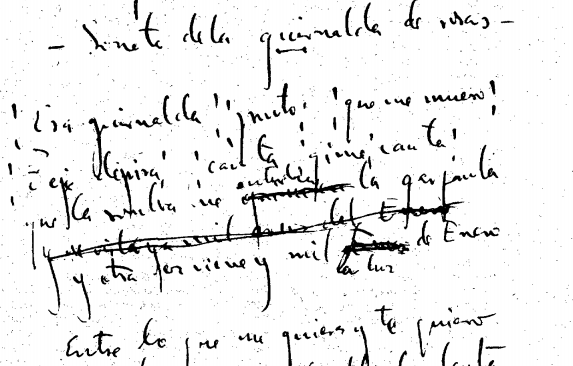 - Soneto de la guirnalda de rosas -
¡Esa guirnalda! ¡pronto! ¡que me muero!
¡Teje deprisa! ¡canta! ¡gime! ¡canta!
que la sombra me enturbia la garganta
mil del Enero
y otra vez viene y mil de Enero
la luz
Entre lo que me quieres y te quiero